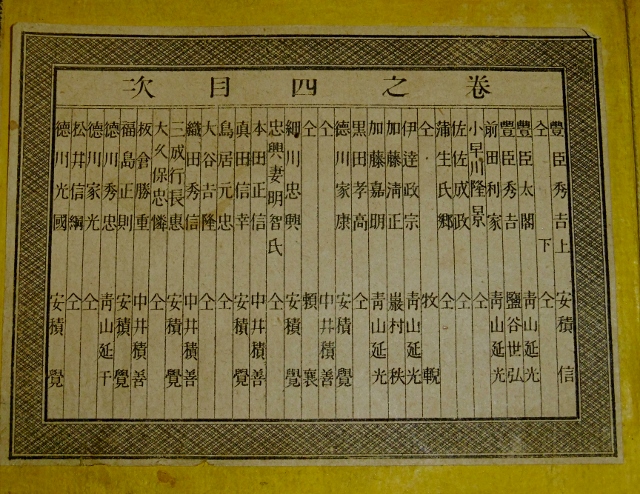 卷之四目次
豐臣秀吉上 安積信
仝 下 仝
豐臣太閤 靑山延光
豐臣秀吉 鹽谷世弘
前田利家 靑山延光
小早川隆景 仝
佐佐成政 仝
蒲生氏鄕 仝
仝 牧輗
伊達政宗 靑山延光
加藤淸正 巖村秩
加藤嘉明 靑山延光
黒田孝高 仝
德川家康 安積覺
仝 中井積善
仝 賴襄
細川忠興 安積覺
忠興妻明智氏 仝
本田正信 中井積善
眞田信幸 安積覺
鳥居元忠 仝
大谷吉隆 仝
織田秀信 中井積善
三成行長惠 安積覺
大久保忠隣 仝
板倉勝重 中井積善
福島正則 安積覺
德川秀忠 靑山延于
德川家光 仝
松井信綱 仝
德川光國 安積覺